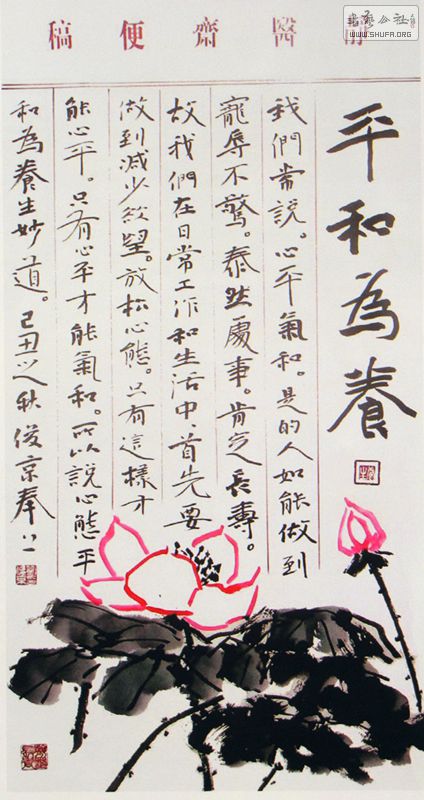 醫齋便稿
書藝公社
WWW.SHUFA.ORG
平和為養
我們常說。心平氣和。是的人如能做到
寵辱不驚。泰然處事。肯定長壽。
故我們在日常工作和生活中、首先要
做到減少欲望。放松心態。只有這樣才
能心平。只有心平才能氣和。所以說心態平
和為養生妙道。己丑之秋俊京奉上